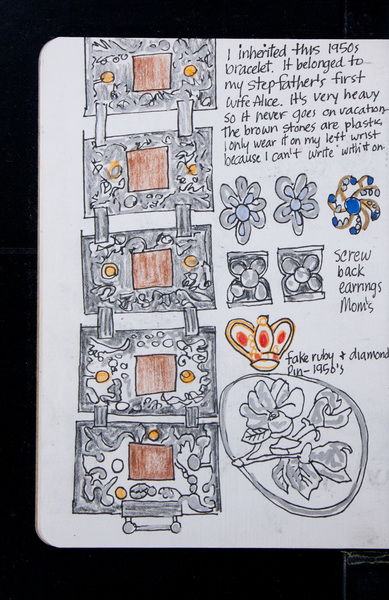 I inherited this 1950s
bracelet. It belonged to
my stepfather's first
wife Alice. It's very heavy
so it never goes on vacation.
The brown stones are plastic.
I only wear it on my left wrist
because I can't write with it on.
Screw
back
earrings
Mom's
fake ruby + diamond
Pin - 1950's